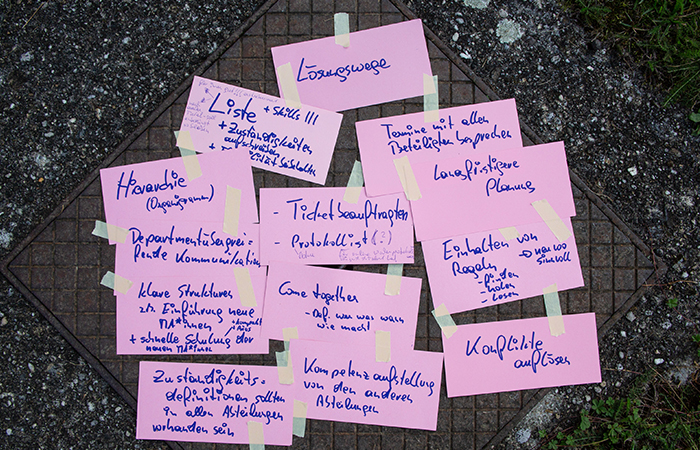 Lösungswege
Liste + Skills !!!
+ Zuständigkeiten
aufschreiben
Termine mit allen
Beteiligten besprechen
Hierarchie
(Organigramm)
- Ticketbeauftragten
- Protokollist (?)
Langfristigere
Planung
Departmentübergrei-
fende Kommunikation
Einhalten von
Regeln → nur wo
sinnvoll
- finden
- holen
- lösen
klare Strukturen
z.B. Einführung neue
MA*innen
+ schnelle Schulung der
neuen MA*innen
Come together
- Def. wer was wann
wie macht
Konflikte
auflösen
Zuständigkeits-
definitionen sollten
in allen Abteilungen
vorhanden sein
Kompetenzaufstellung
von den anderen
Abteilungen